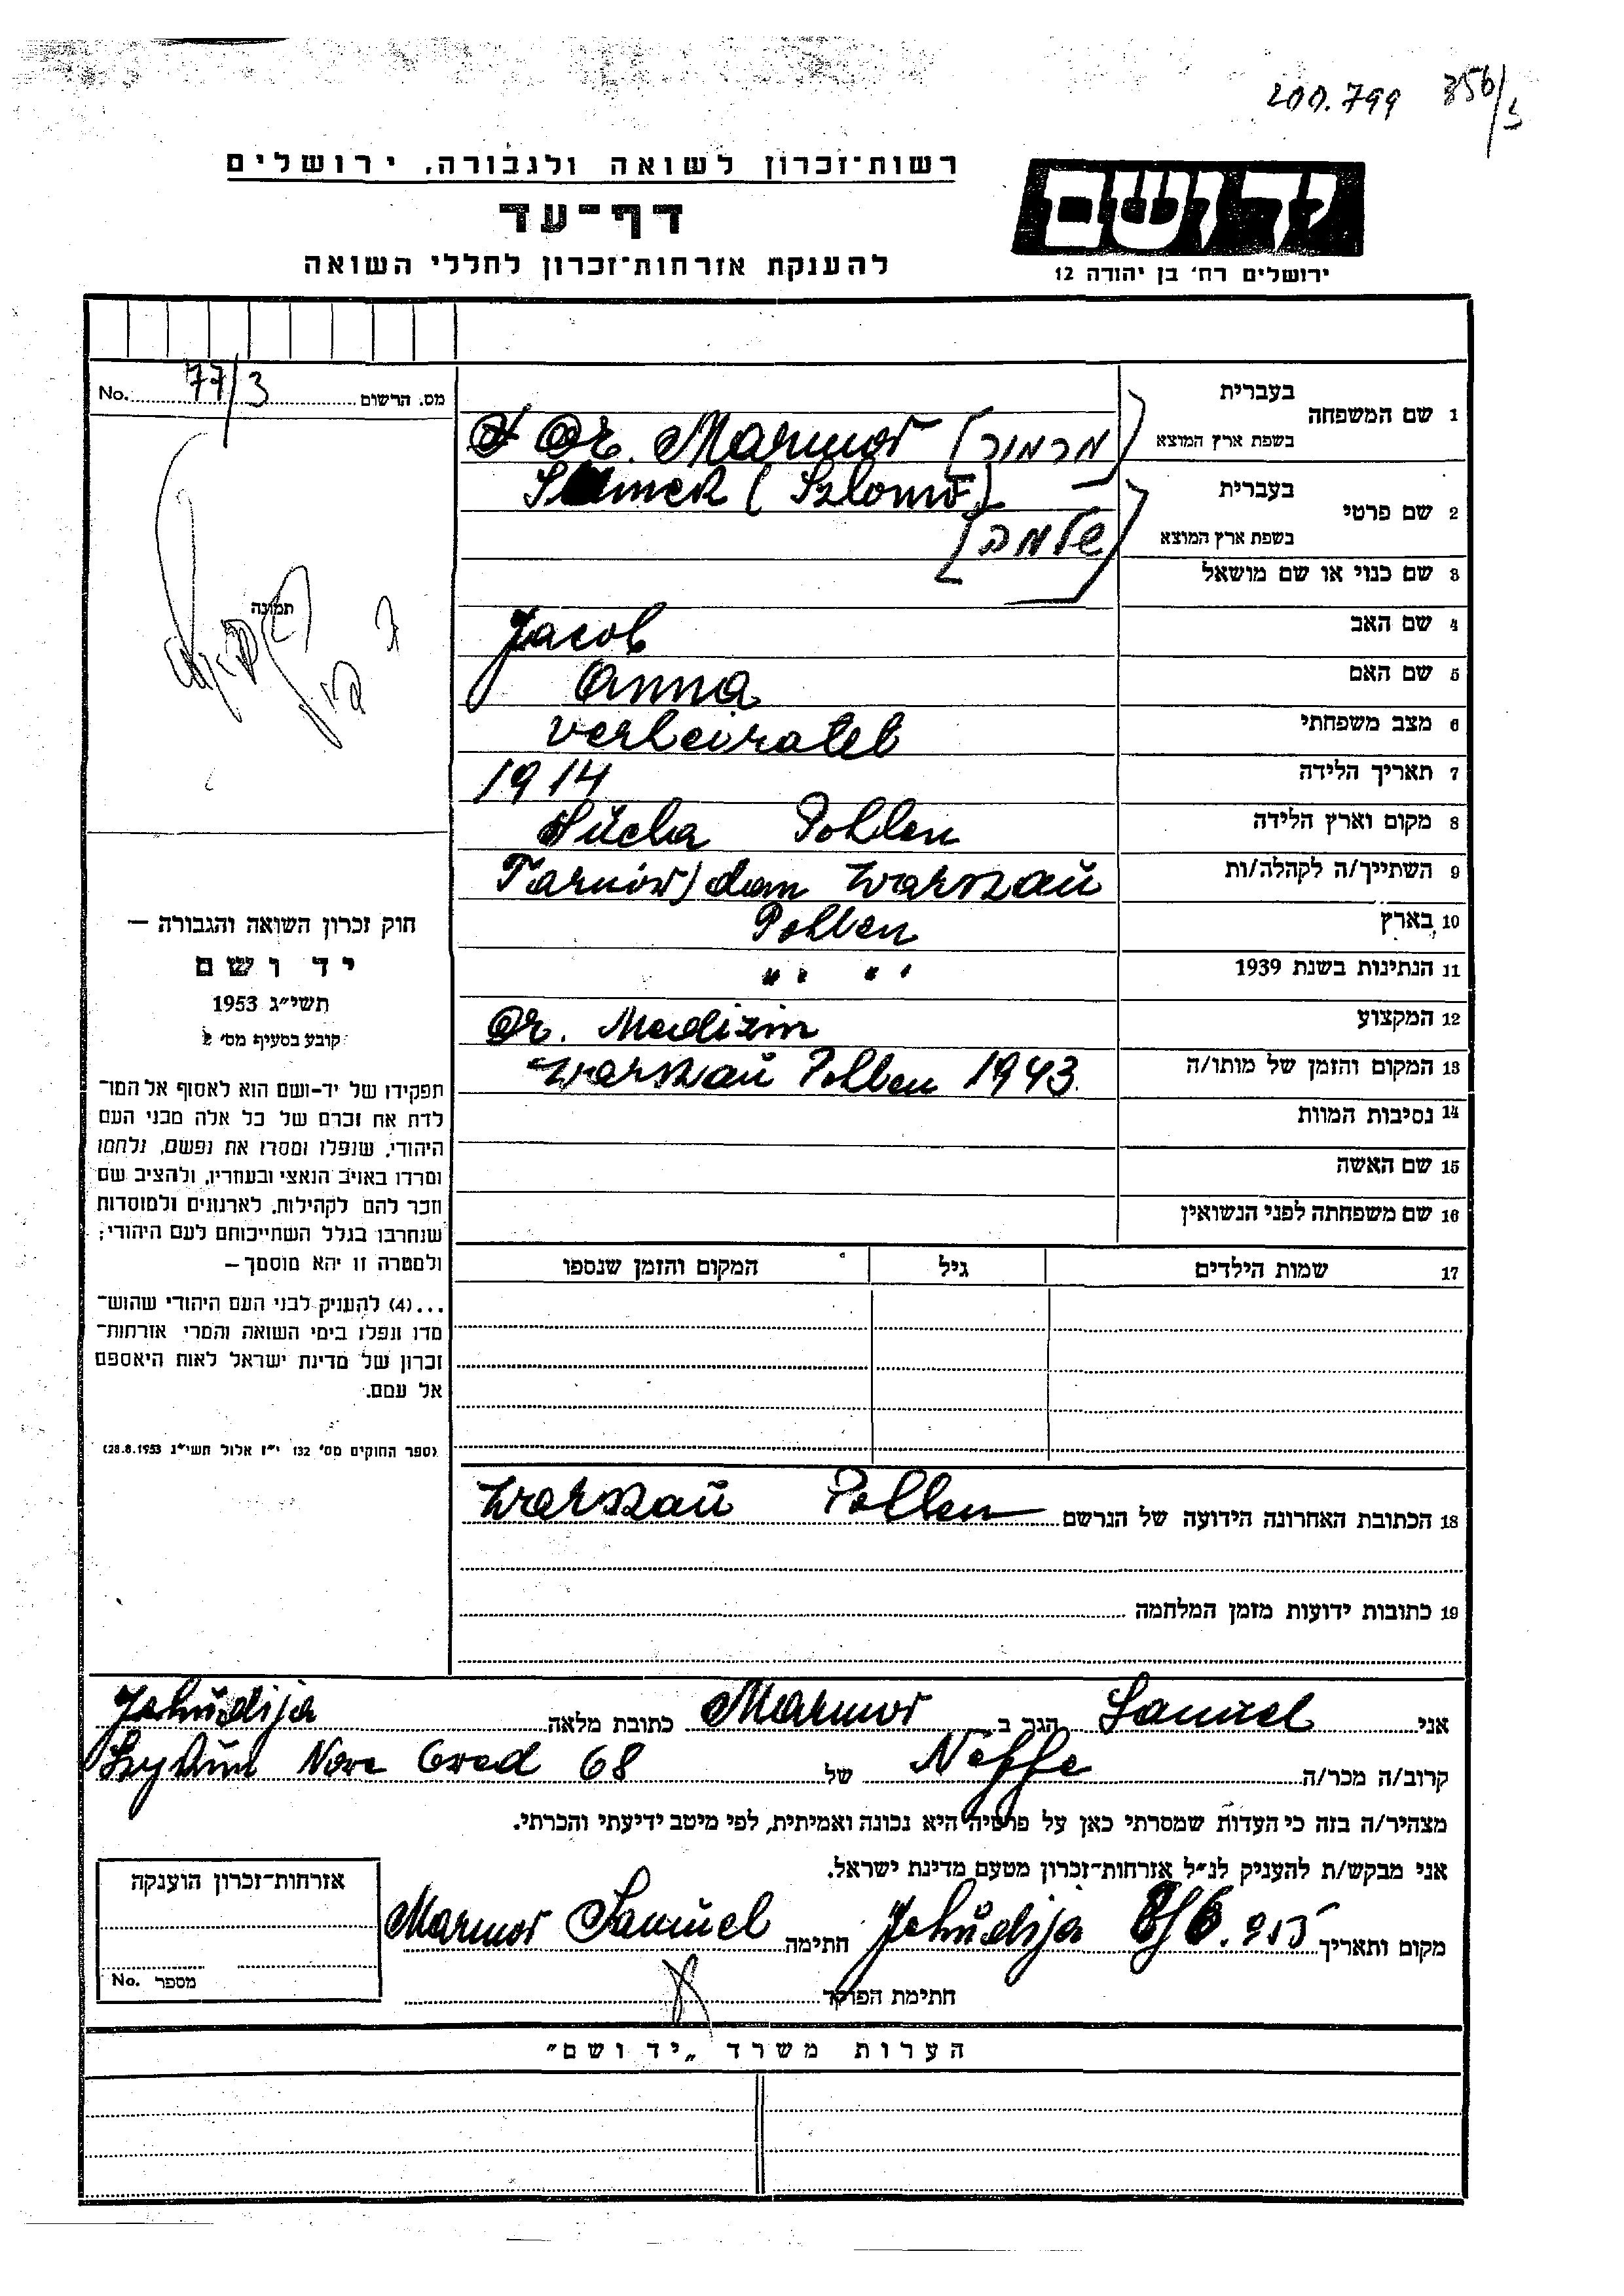 200.799 356/3
רשות־זכרון לשואה ולגבורה, ירושלים
דף־עד
להענקת אזרחות־זכרון לחללי השואה
יד ושם
ירושלים רח' בן יהודה 12
מס. הרשום 77/3 No.
תמונה
חוק זכרון השואה והגבורה –
יד ושם
תשי״ג 1953
קובע בסעיף מס' 2
תפקידו של יד-ושם הוא לאסוף אל המו־
לדת את זכרם של כל אלה מבני העם
היהודי, שנפלו ומסרו את נפשם, נלחמו
ומרדו באויב הנאצי ובעוזריו, ולהציב שם
וזכר להם לקהילות, לארגונים ולמוסדות
שנחרבו בגלל השתייכותם לעם היהודי;
ולמטרה זו יהא מוסמך –
...(4) להעניק לבני העם היהודי שהוש־
מדו ונפלו בימי השואה והמרי אזרחות־
זכרון של מדינת ישראל לאות היאספם
אל עמם.
(ספר החוקים מס' 132 י״ז אלול תשי״ג 28.8.1953)
1 שם המשפחה בעברית
בשפת ארץ המוצא
Dr. Marmor [מרמור]
2 שם פרטי בעברית
בשפת ארץ המוצא
(Szlomo) [שלמה]
3 שם כנוי או שם מושאל
4 שם האב Jacob
5 שם האם Anna
6 מצב משפחתי verheiratet
7 תאריך הלידה 1914
8 מקום וארץ הלידה Sucha Pohlen
9 השתייך/ה לקהלה/ות Tarnów/dan Warszau
10 בארץ Pohlen
11 הנתינות בשנת 1939 " " " "
12 המקצוע Dr. Medizin
13 המקום והזמן של מותו/ה Warszau Pohlen 1943.
14 נסיבות המוות
15 שם האשה
16 שם משפחתה לפני הנשואין
17 שמות הילדים גיל המקום והזמן שנספו
18 הכתובת האחרונה הידועה של הנרשם Warszau Pohlen
19 כתובות ידועות מזמן המלחמה
אני Samuel הגר ב Marmor כתובת מלאה Jehudija
קרוב/ה מכר/ה Neffe של 68
מצהיר/ה בזה כי העדות שמסרתי כאן על פרטיה היא נכונה ואמיתית, לפי מיטב ידיעתי והכרתי.
אני מבקש/ת להעניק לנ״ל אזרחות־זכרון מטעם מדינת ישראל.
מקום ותאריך Jehudija 8/6. 955 חתימה Marmor Samuel
חתימת הפוקד
אזרחות־זכרון הוענקה
מספר No.
הערות משרד „יד ושם״